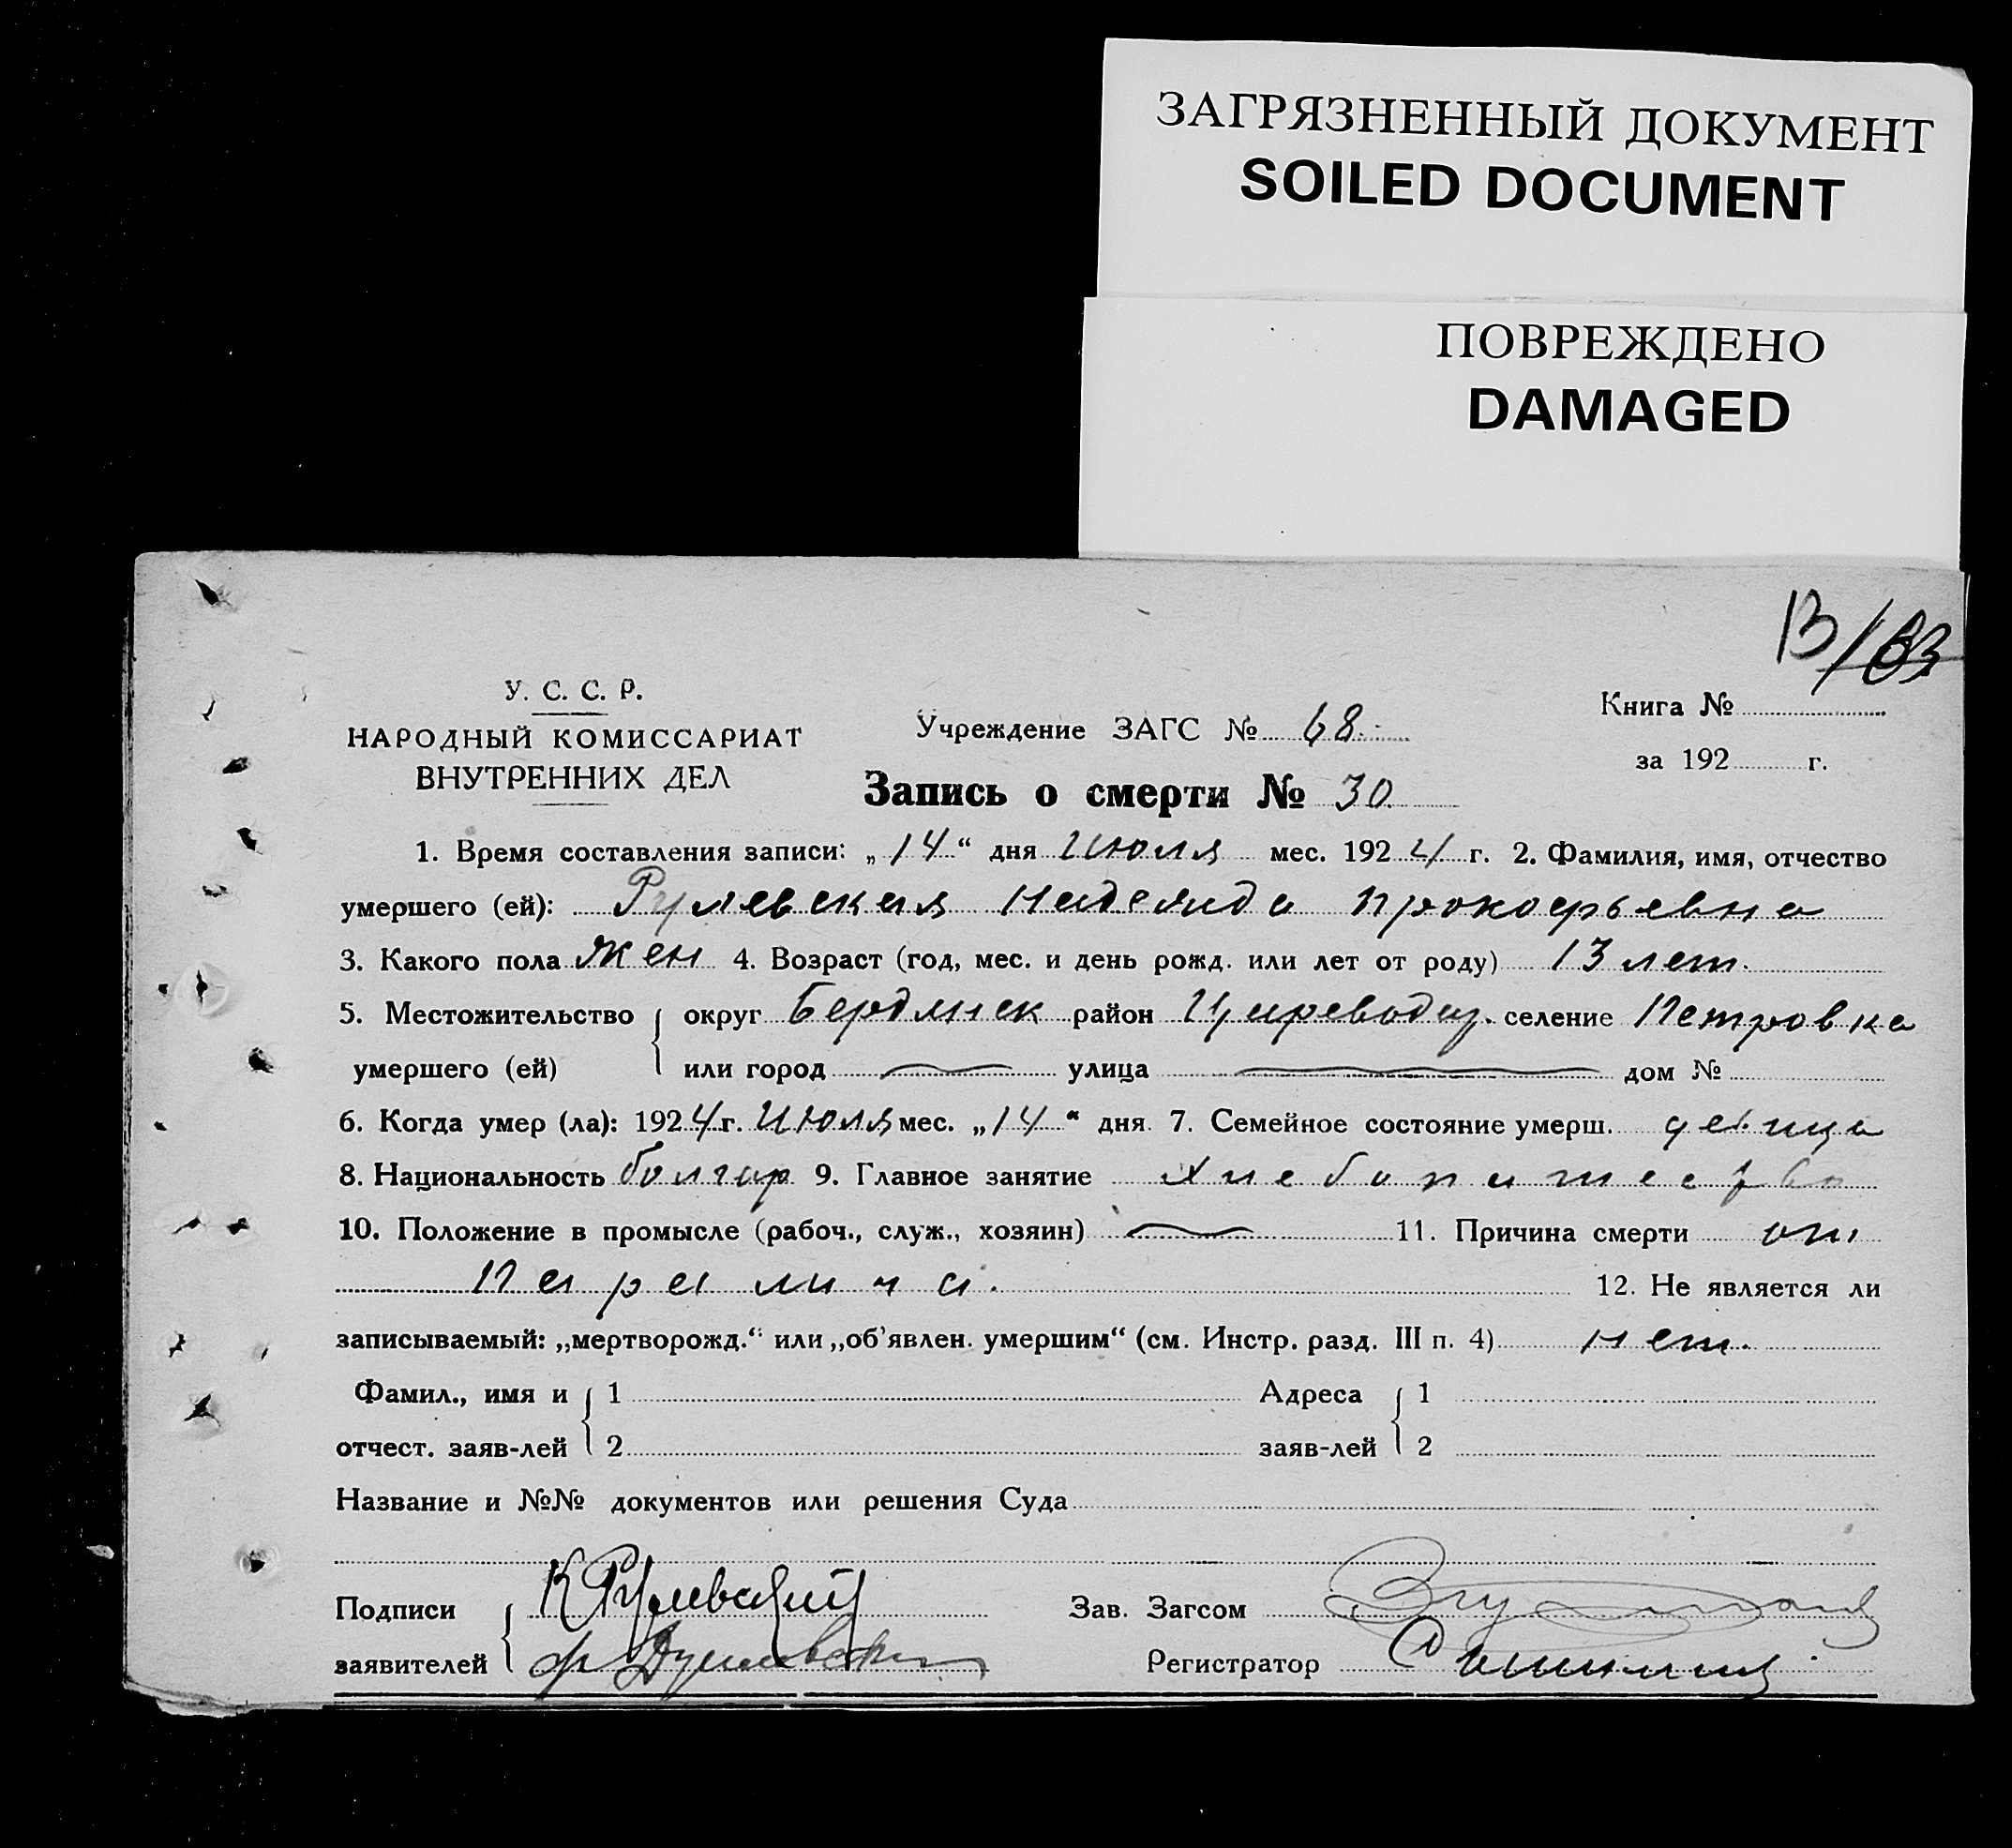 ЗАГРЯЗНЕННЫЙ ДОКУМЕНТ
SOILED DOCUMENT
ПОВРЕЖДЕНО
DAMAGED
13/83
У. С. С. Р.
НАРОДНЫЙ КОМИССАРИАТ
ВНУТРЕННИХ ДЕЛ
Учреждение ЗАГС № 68.
Книга №
за 192 г.
Запись о смерти № 30
1. Время составления записи: „14“ дня Июля мес. 1924 г. 2. Фамилия, имя, отчество
умершего (ей): Рулевская Надежда Прокофьевна
3. Какого пола жен 4. Возраст (год, мес. и день рожд. или лет от роду) 13 лет.
5. Местожительство { округ Бердянск район селение Петровка
умершего (ей) или город улица дом №
6. Когда умер (ла): 1924 г. Июля мес. „14“ дня. 7. Семейное состояние умерш. девица
8. Национальность болгар 9. Главное занятие Хлебопашество
10. Положение в промысле (рабоч., служ., хозяин) 11. Причина смерти от
Паралича. 12. Не является ли
записываемый: „мертворожд.“ или „об'явлен. умершим“ (см. Инстр. разд. III п. 4) нет.
Фамил., имя и { 1 Адреса { 1
отчест. заяв-лей 2 заяв-лей 2
Название и №№ документов или решения Суда
Подписи { К Рулевский Зав. Загсом
заявителей Регистратор